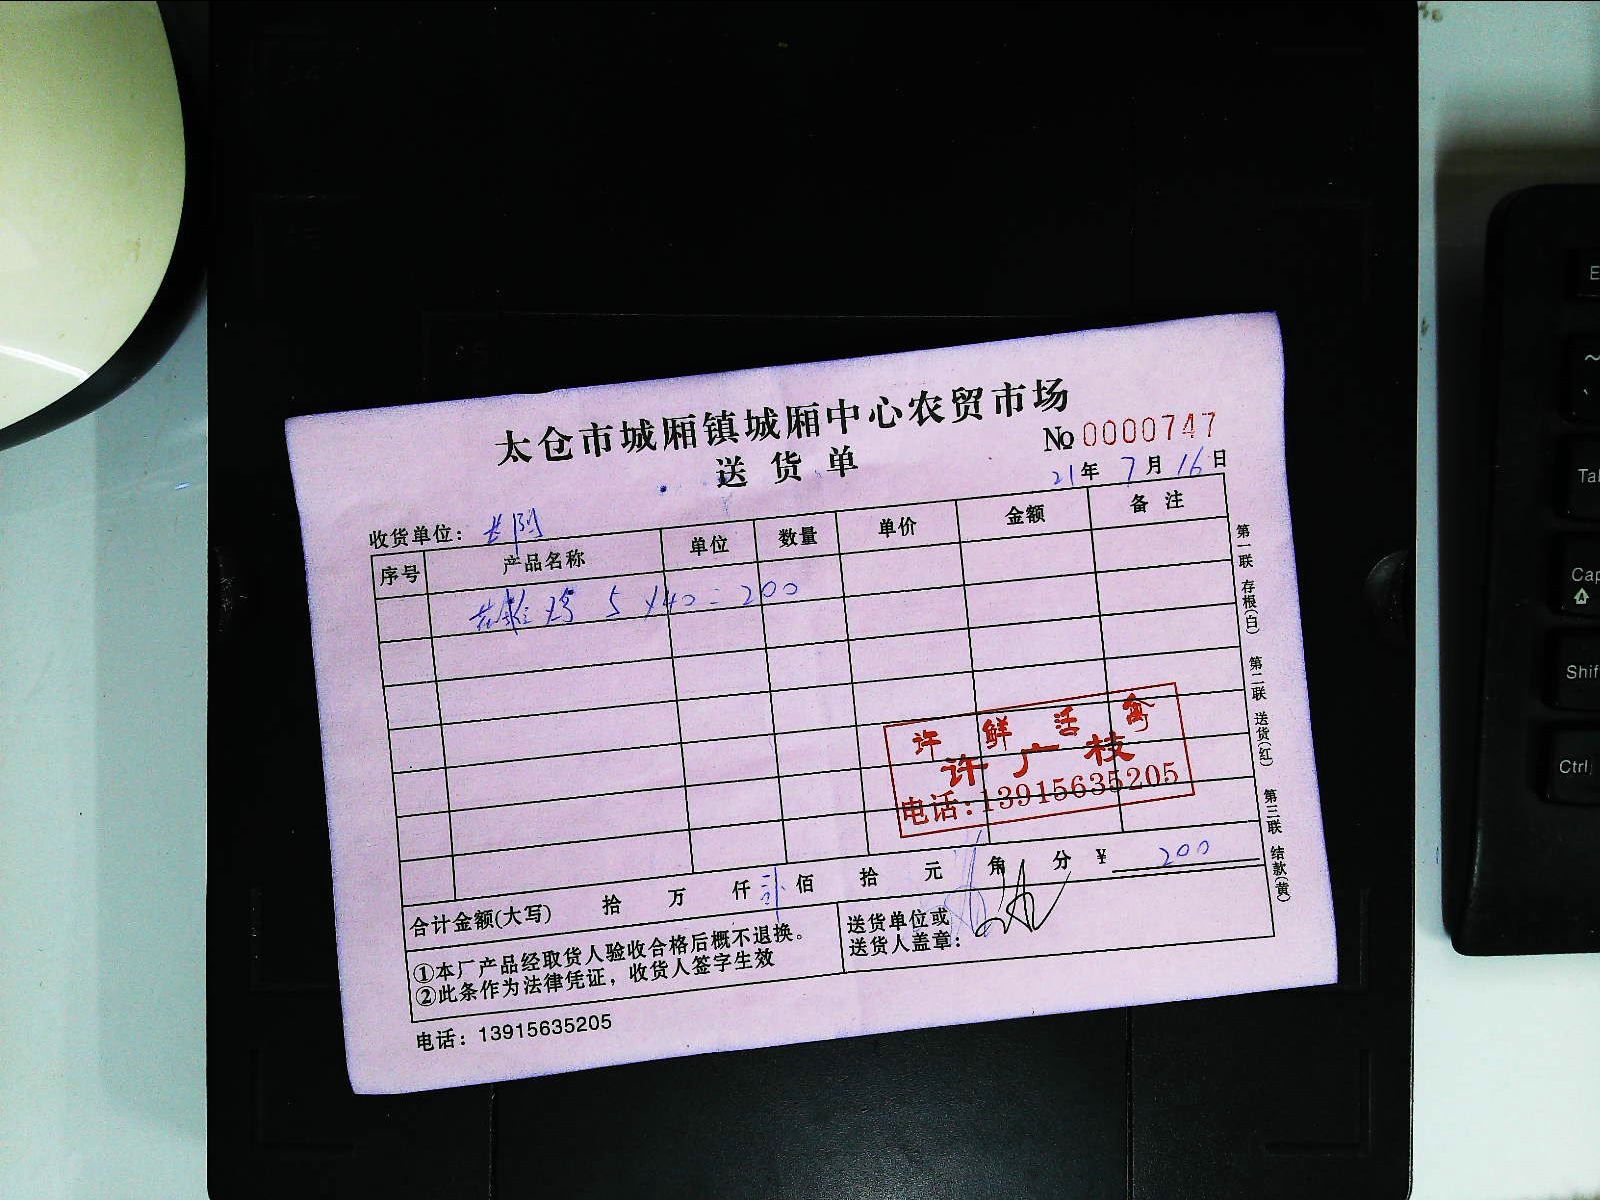 太仓市城厢镇城厢中心农贸市场
送货单
No 0000747
21年 7月 16日
收货单位：
序号 产品名称 单位 数量 单价 金额 备注
5 × 40 = 200
许 鲜 活 禽
许广枝
电话:13915635205
合计金额(大写) 拾 万 仟 佰 拾 元 角 分 ¥ 200
①本厂产品经取货人验收合格后概不退换。
②此条作为法律凭证，收货人签字生效
送货单位或
送货人盖章：
电话：13915635205
第一联 存根(白) 第二联 送货(红) 第三联 结款(黄)
Tab
Shif
Ctrl